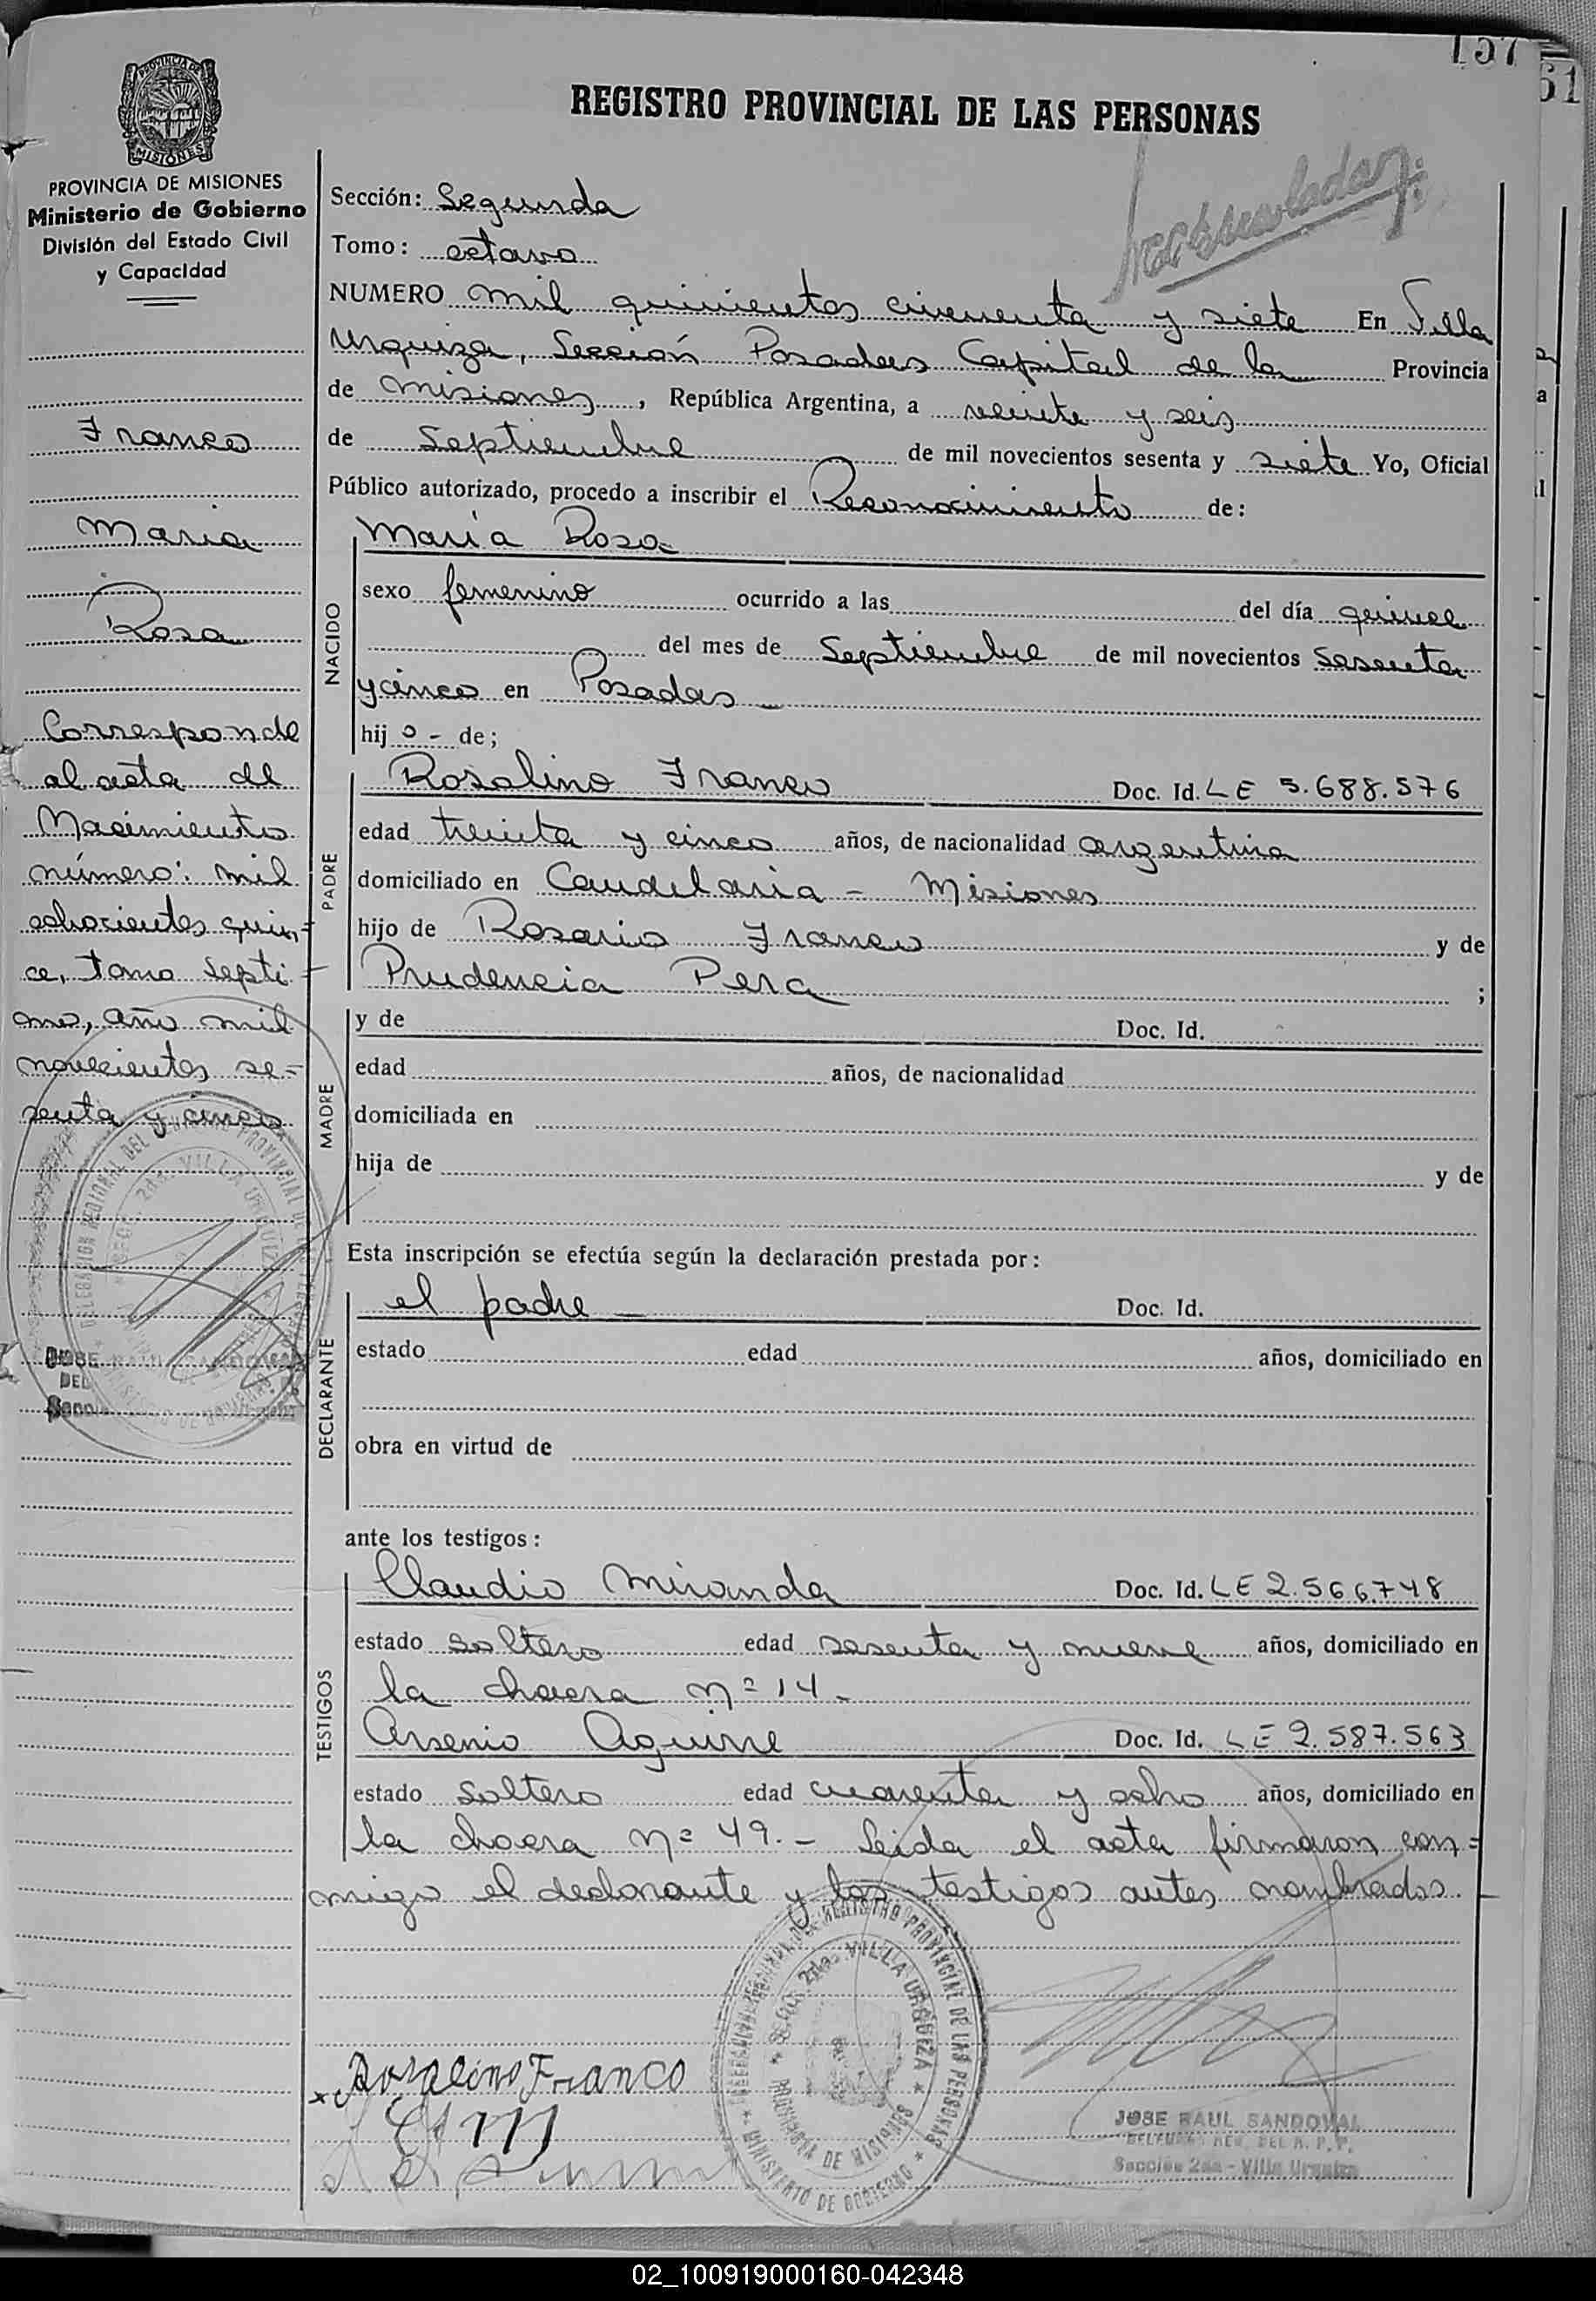 157
61
PROVINCIA DE MISIONES
PROVINCIA DE MISIONES
Ministerio de Gobierno
División del Estado Civil
y Capacidad
REGISTRO PROVINCIAL DE LAS PERSONAS
Sección: Segunda
Tomo: octavo
NUMERO mil quinientos cincuenta y siete En Villa
Urquiza, Sección Posadas Capital de la Provincia
de Misiones, República Argentina, a veinte y seis
de Septiembre de mil novecientos sesenta y siete Yo, Oficial
Público autorizado, procedo a inscribir el Reconocimiento de:
Franco
María
Rosa
Corresponde
al acta de
Nacimiento
número: mil
ochocientos quin=
ce, tomo septi-
mo, año mil
novecientos se=
senta y cinco
NACIDO
María Rosa
sexo femenino ocurrido a las del día quince
del mes de Septiembre de mil novecientos sesenta
y cinco en Posadas —
hij o - de;
PADRE
Rosalino Franco Doc. Id. LE 5.688.576
edad treinta y cinco años, de nacionalidad argentina
domiciliado en Candelaria - Misiones
hijo de Rosario Franco y de
Prudencia Pera ;
MADRE
y de Doc. Id.
edad años, de nacionalidad
domiciliada en
hija de y de
Esta inscripción se efectúa según la declaración prestada por:
DECLARANTE
el padre — Doc. Id.
estado edad años, domiciliado en
obra en virtud de
ante los testigos:
TESTIGOS
Claudio Miranda Doc. Id. LE 2.566.748
estado soltero edad sesenta y nueve años, domiciliado en
la chacra nº 14.-
Arsenio Aguirre Doc. Id. LE 2.587.563
estado soltero edad cuarenta y ocho años, domiciliado en
la chacra nº 49.- Leída el acta firmaron con=
migo el declarante y los testigos antes nombrados.-
DELEGACION REGIONAL DEL REGISTRO PROVINCIAL DE LAS PERSONAS
Secc. 2da. VILLA URQUIZA
PROVINCIA DE MISIONES
MINISTERIO DE GOBIERNO
x Rosalino Franco
JOSE RAUL SANDOVAL
DEL R. P. P.
Sección 2da - Villa Urquiza
JOSE RAUL SANDOVAL
DEL
02_100919000160-042348